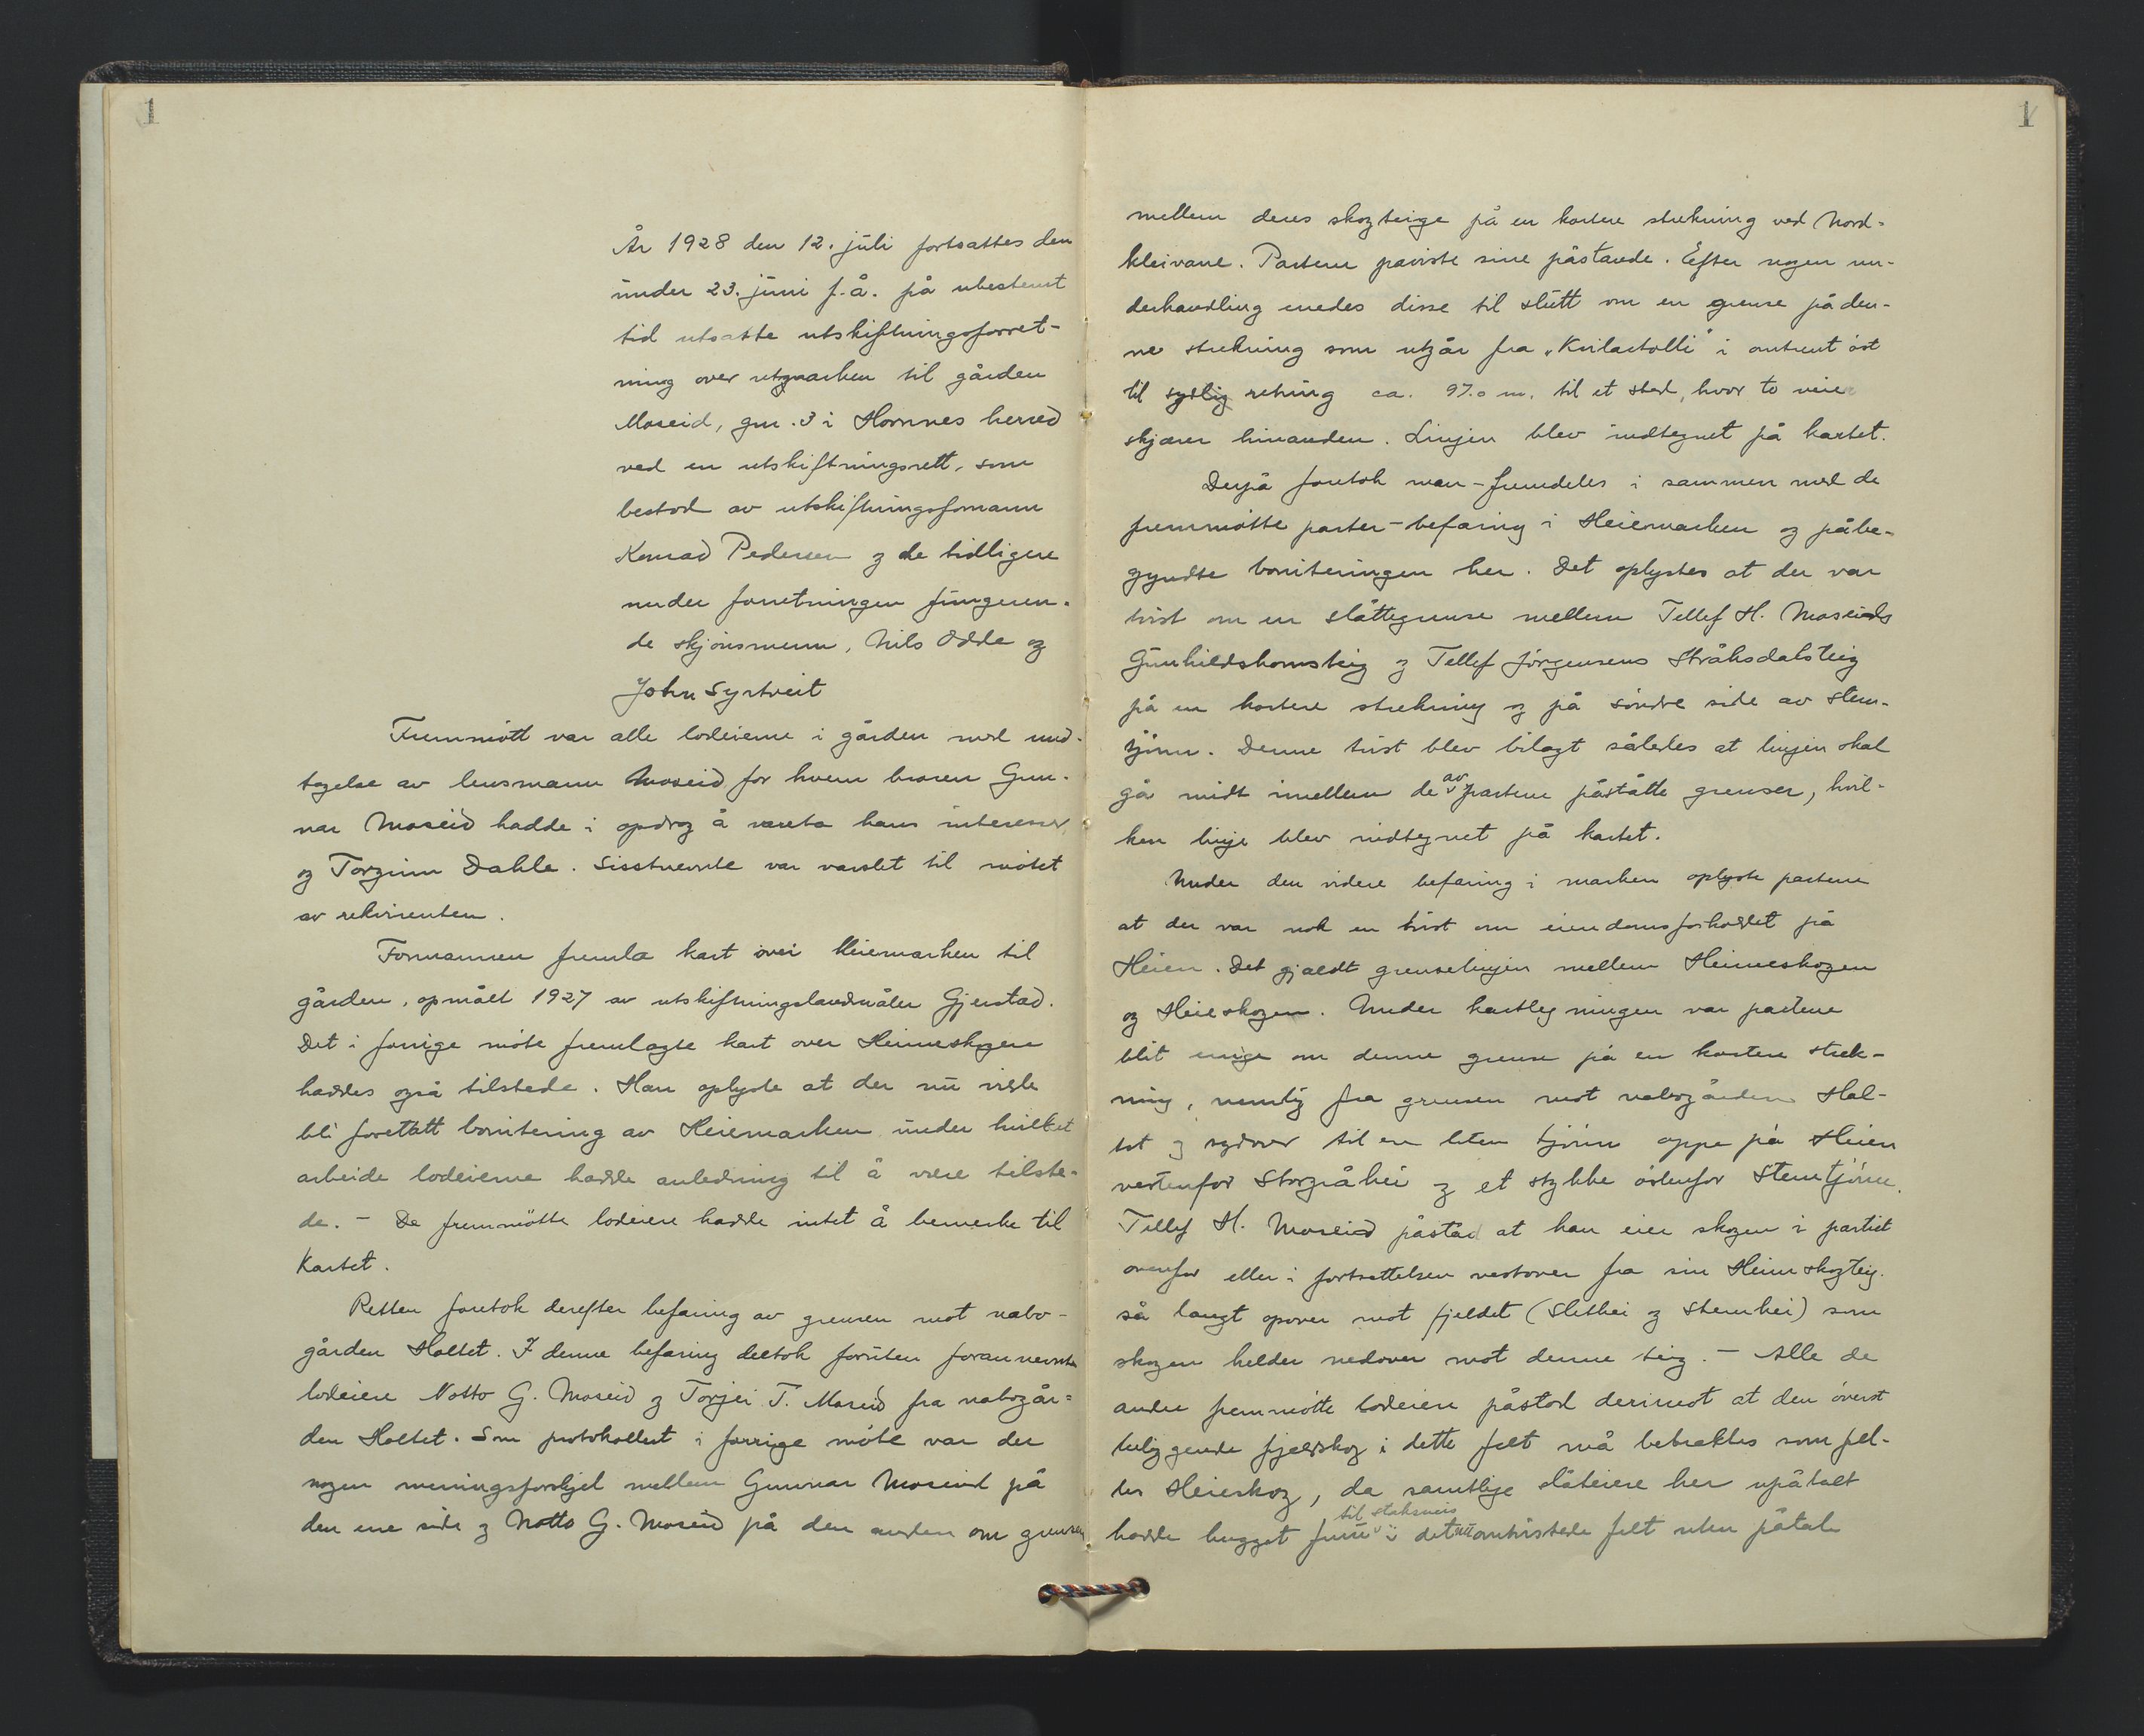 1
År 1928 den 12. juli fortsattes den
under 23. juni f.å. på ubestemt
tid utsatte utskiftningsforret-
ning over utmarken til gården
Moseid, gnr. 3 i Hornnes herred
ved en utskiftningsrett, som
bestod av utskiftningsformann
Konrad Pedersen og de tidligere
under forretningen fungeren-
de skjönsmenn, Nils Odde og
John Syrtveit
Fremmött var alle lodeierne i gården med und-
tagelse av lensmann Moseid for hvem broren Gun-
nar Moseid hadde i opdrag å vareta hans interesser
og Torginn Dahle. Sisstnevnte var varslet til mötet
av rekvirenten.
Formannen fremla kart over Heiemarken til
gården, opmålt 1927 av utskiftningslandmåler Gjerstad.
Det i forrige möte fremlagte kart over Heimeskogen
haddes også tilstede. Han oplyste at der nu vilde
bli foretatt bonitering av Heiemarken under hvilket
arbeide lodeierne hadde anledning til å være tilste-
de. - De fremmötte lodeiere hadde intet å bemerke til
Kartet.
Retten foretok derefter befaring av grensen mot nabo-
gården Holtet. I denne befaring deltok foruten forannevnte
lodeiere Notto G. Moseid og Torjei T. Moseid fra nabogår-
den Holtet. Som protokollert i forrige möte var der
nogen meningsforskjel mellem Gunnar Moseid på
den ene side og Notto G. Moseid på den anden om grensen
1
mellem deres skogteige på en kortere strekning ved Nord-
kleivane. Partene påviste sine påstande. Efter nogen un-
derhandling enedes disse til slutt om en grense på den-
ne strekning som utgår fra „Kvilastolli" i omtrent öst
til sydlig retning ca. 97.0 m. til et sted, hvor to veier
skjærer hinanden. Linjen blev indtegnet på kartet.
Derpå foretok man - fremdeles i sammen med de
fremmötte parter - befaring i Heiemarken og påbe-
gyndte boniteringen her. Det oplystes at der var
tvist om en slåttegrense mellem Tellef H. Moseids
Gunhildshomsteig og Tellef Jörgensens Stråksdalsteig
på en kortere strekning og på söndre side av Stem-
tjönn. Denne tvist blev bilagt således at linjen skal
gå midt imellem de av partene påståtte grenser, hvil-
ken linje blev indtegnet på kartet.
Under den videre befaring i marken oplyste partene
at der var nok en tvist om eiendomsforholdet på
Heien. Det gjaldt grenselinjen mellem Heimeskogen
og Heieskogen. Under kartlegningen var partene
blit enige om denne grense på en kortere strek-
ning, nemlig fra grensen mot nabogården Hol-
tet og sydover til en liten tjönn oppe på Heien
vestenfor Storgråhei og et stykke östenfor Stemtjönn.
Tellef H. Moseid påstod at han eier skogen i partiet
ovenfor eller i fortsettelsen vestover fra sin Heimskogteig.
så langt opover mot fjeldet (Slethei og Stemhei) som
skogen helder nedover mot denne teig. - Alle de
andre fremmötte lodeiere påstod derimot at den överst
beliggende fjeldskog i dette felt må betraktes som fel-
les Heieskog, da samtlige slåteiere her upåtalt
hadde hugget furu til staksneis i det nu omtvistede felt uten påtale